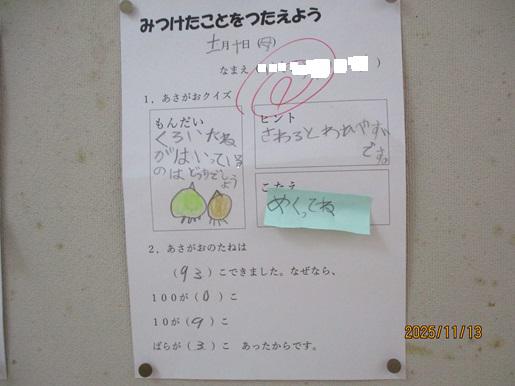 みつけたことをつたえよう
十一月十日(月)
なまえ( )
1．あさがおクイズ
もんだい
くろいたね
がはいっている
のはどっちでしょう
ヒント
さわるとわれやすい
です。
こたえ
めくってね
2．あさがおのたねは
(93)こできました。なぜなら、
100が(0)こ
10が(9)こ
ばらが(3)こ あったからです。
2025/11/13